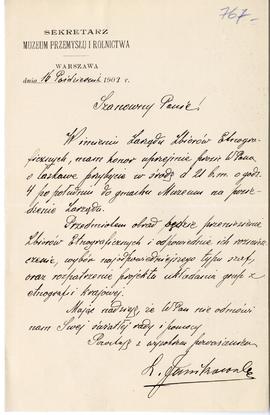 767.
SEKRETARZ
MUZEUM PRZEMYSŁU I ROLNICTWA
WARSZAWA
dnia 16 Październik 1901 r.
Szanowny Panie!
W imieniu Zarządu Zbiorów Etnogra-
ficznych, mam honor uprzejmie prosić WPana
o łaskawe przybycie w środę d 21 b.m. o godz.
4 po południu do gmachu Muzeum na posie-
dzenie Zarządu.
Przedmiotem obrad będzie przeniesienie
Zbiorów Etnograficznych i odpowiednie ich rozmiesz-
czenie, wybór najodpowiedniejszego typu szaf,
oraz rozpatrzenie projektu układania grup z
etnografii krajowej.
Mając nadzieję, że WPan nie odmówi
nam Swej światłej rady i pomocy
Pozostaję z wysokim poważaniem